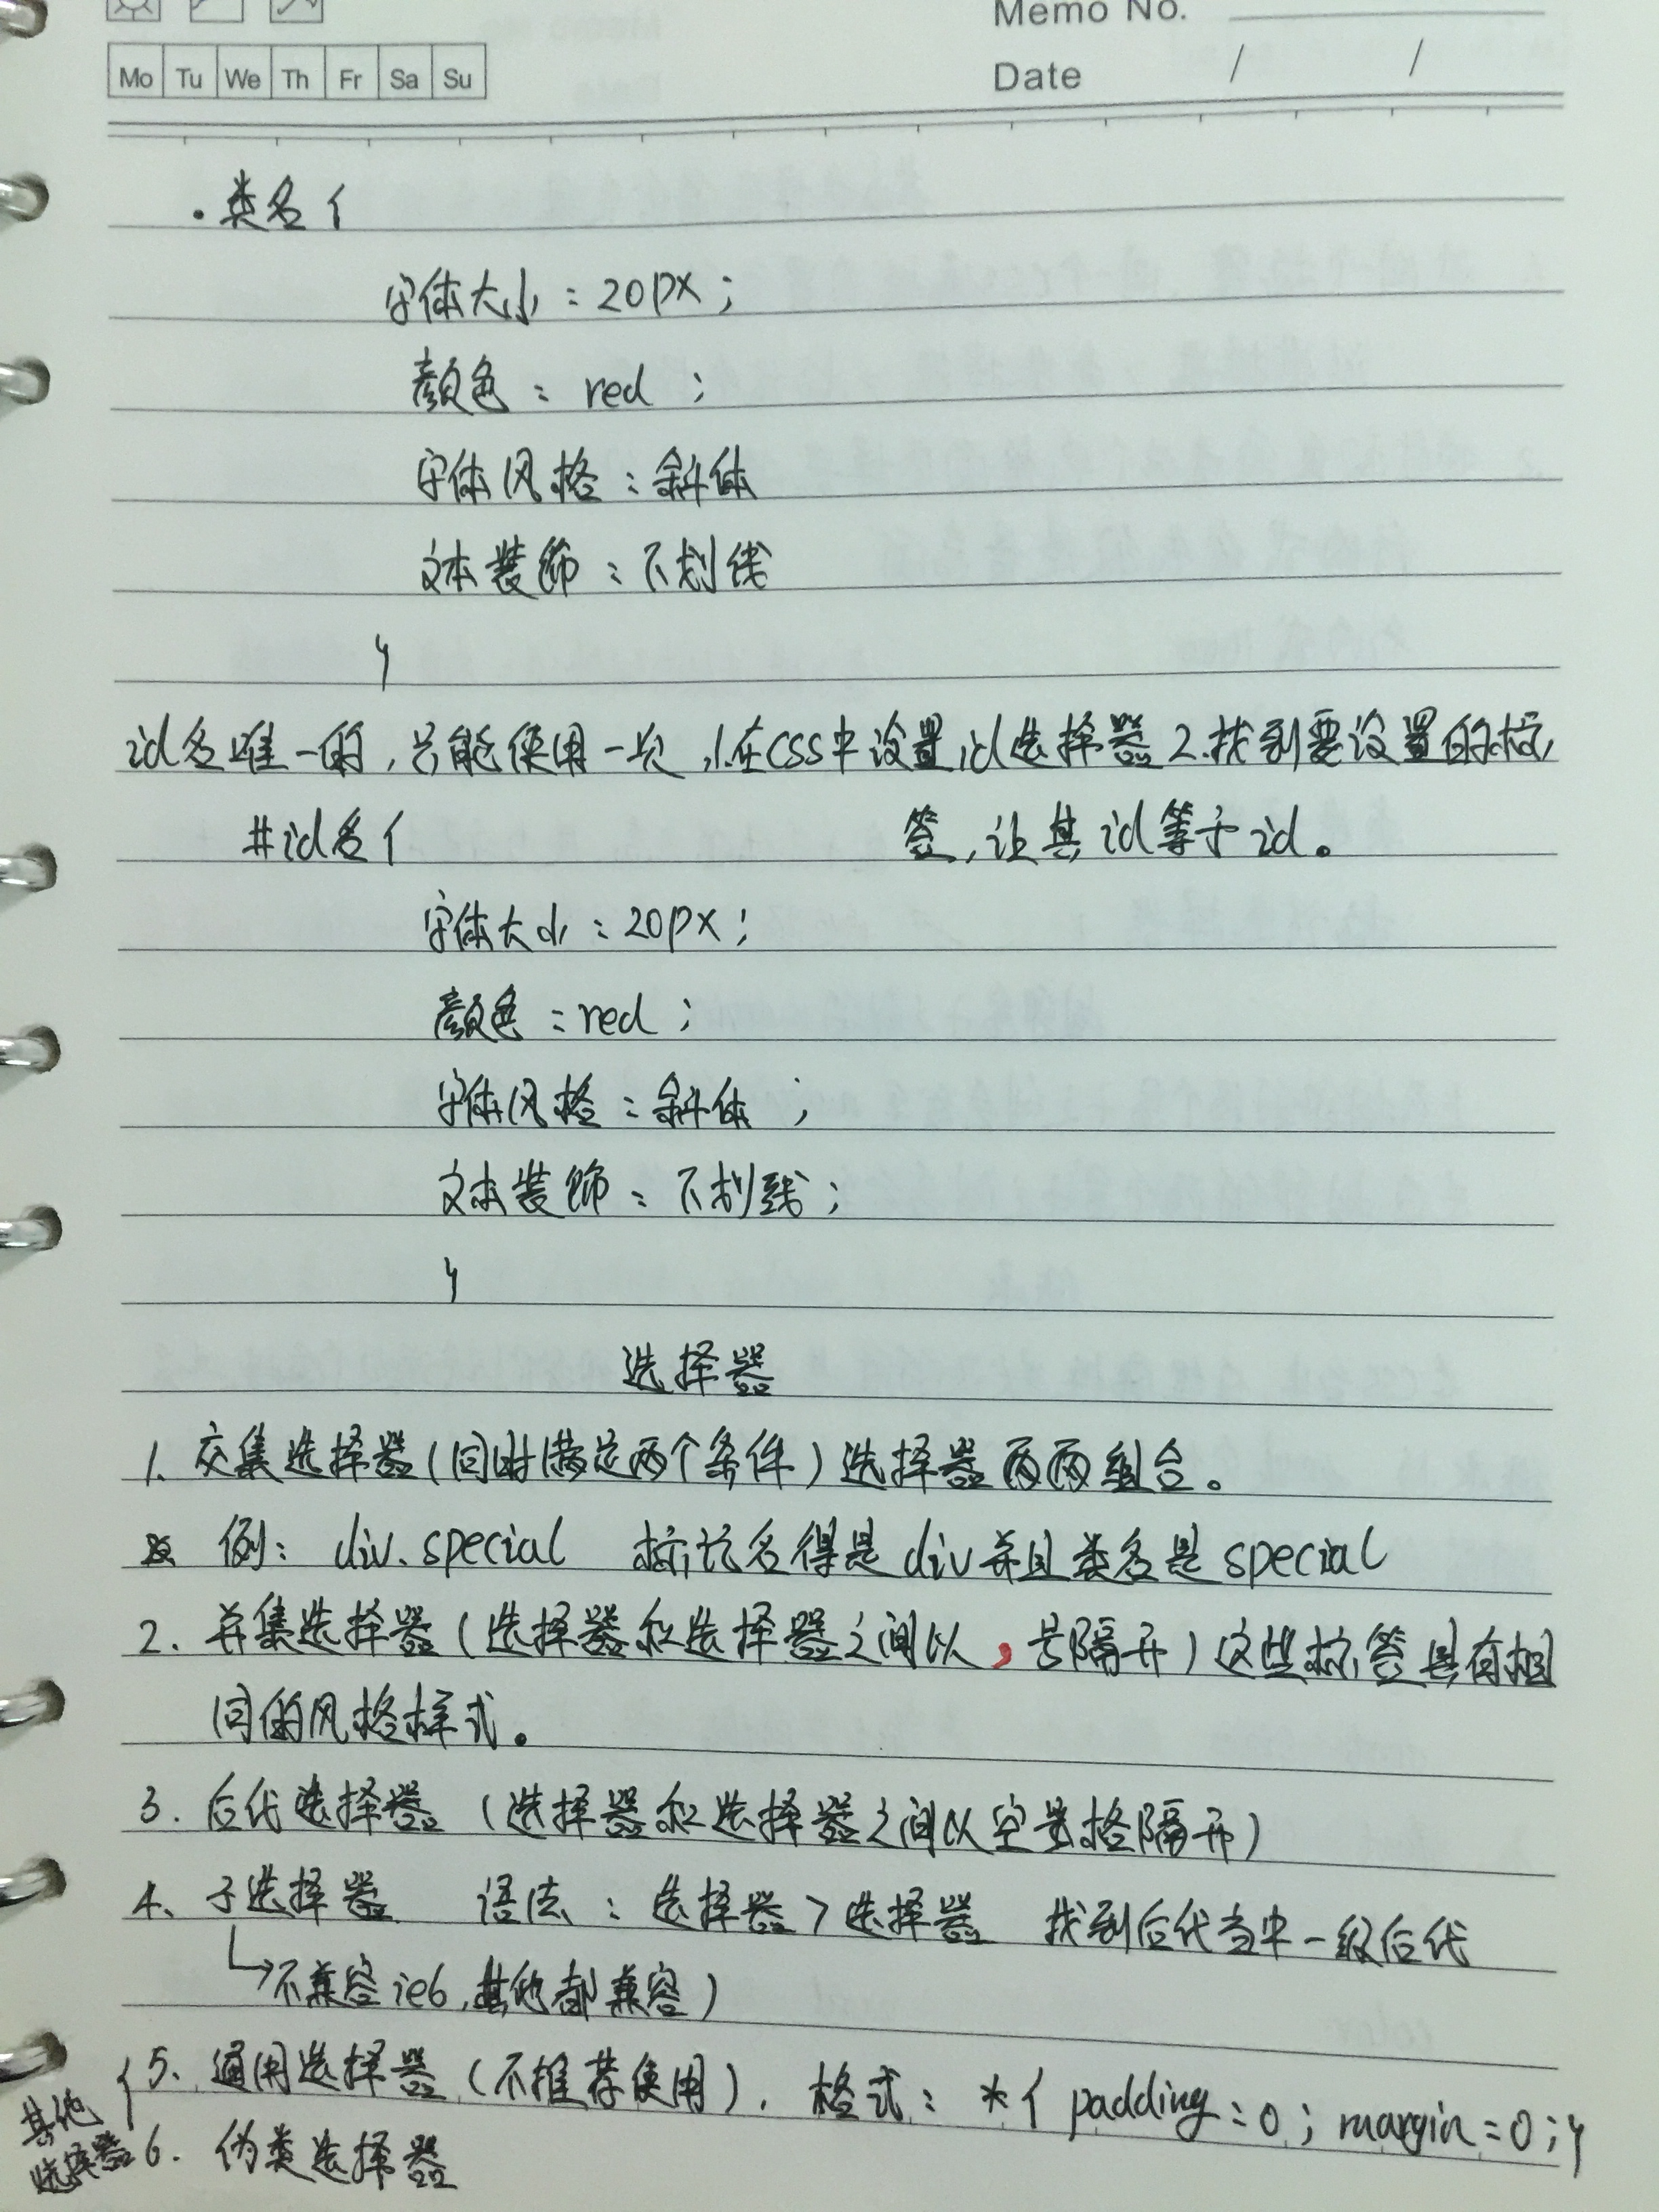 Memo No.
Mo Tu We Th Fr Sa Su
Date / /
.类名{
字体大小：20px；
颜色：red；
字体风格：斜体
文本装饰：下划线
}
id名唯一的，只能使用一次，1.在CSS中设置id选择器 2.找到要设置的标
#id名{ 签，让其id等于id。
字体大小：20px；
颜色：red；
字体风格：斜体；
文本装饰：下划线；
}
选择器
1、交集选择器(同时满足两个条件)选择器两两组合。
例：div.special 标记名得是div并且类名是special
2、并集选择器(选择器和选择器之间以，号隔开)这些标签具有相
同的风格样式。
3. 后代选择器 (选择器和选择器之间以空格隔开)
4、子选择器 语法：选择器>选择器 找到后代当中一级后代
↳不兼容ie6,其他都兼容)
{5、通用选择器(不推荐使用)，格式：*{padding=0；margin=0；}
其他
选择器 6. 伪类选择器